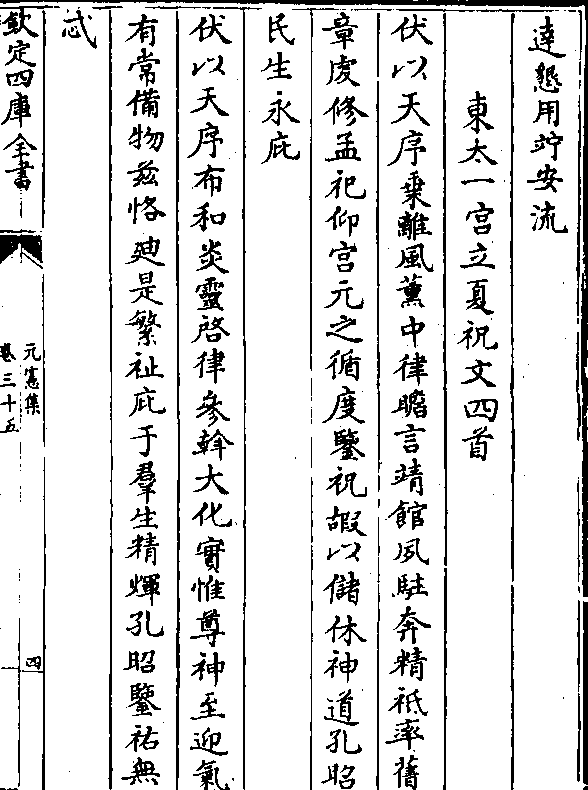 達懇用竚安流
東太一宮立夏祝文四首
伏以天序乗離風薫中律瞻言靖館夙駐奔精祇率舊
章䖍修孟祀仰宫元之循度鑒祝嘏以儲休神道孔昭
民生永庇
伏以天序布和炎靈啓律參斡大化實惟尊神至迎氣
有常備物兹恪廸是繁祉庇于羣生精輝孔昭鑒祐無
忒
欽定四庫全書
元憲集
卷三十五
四